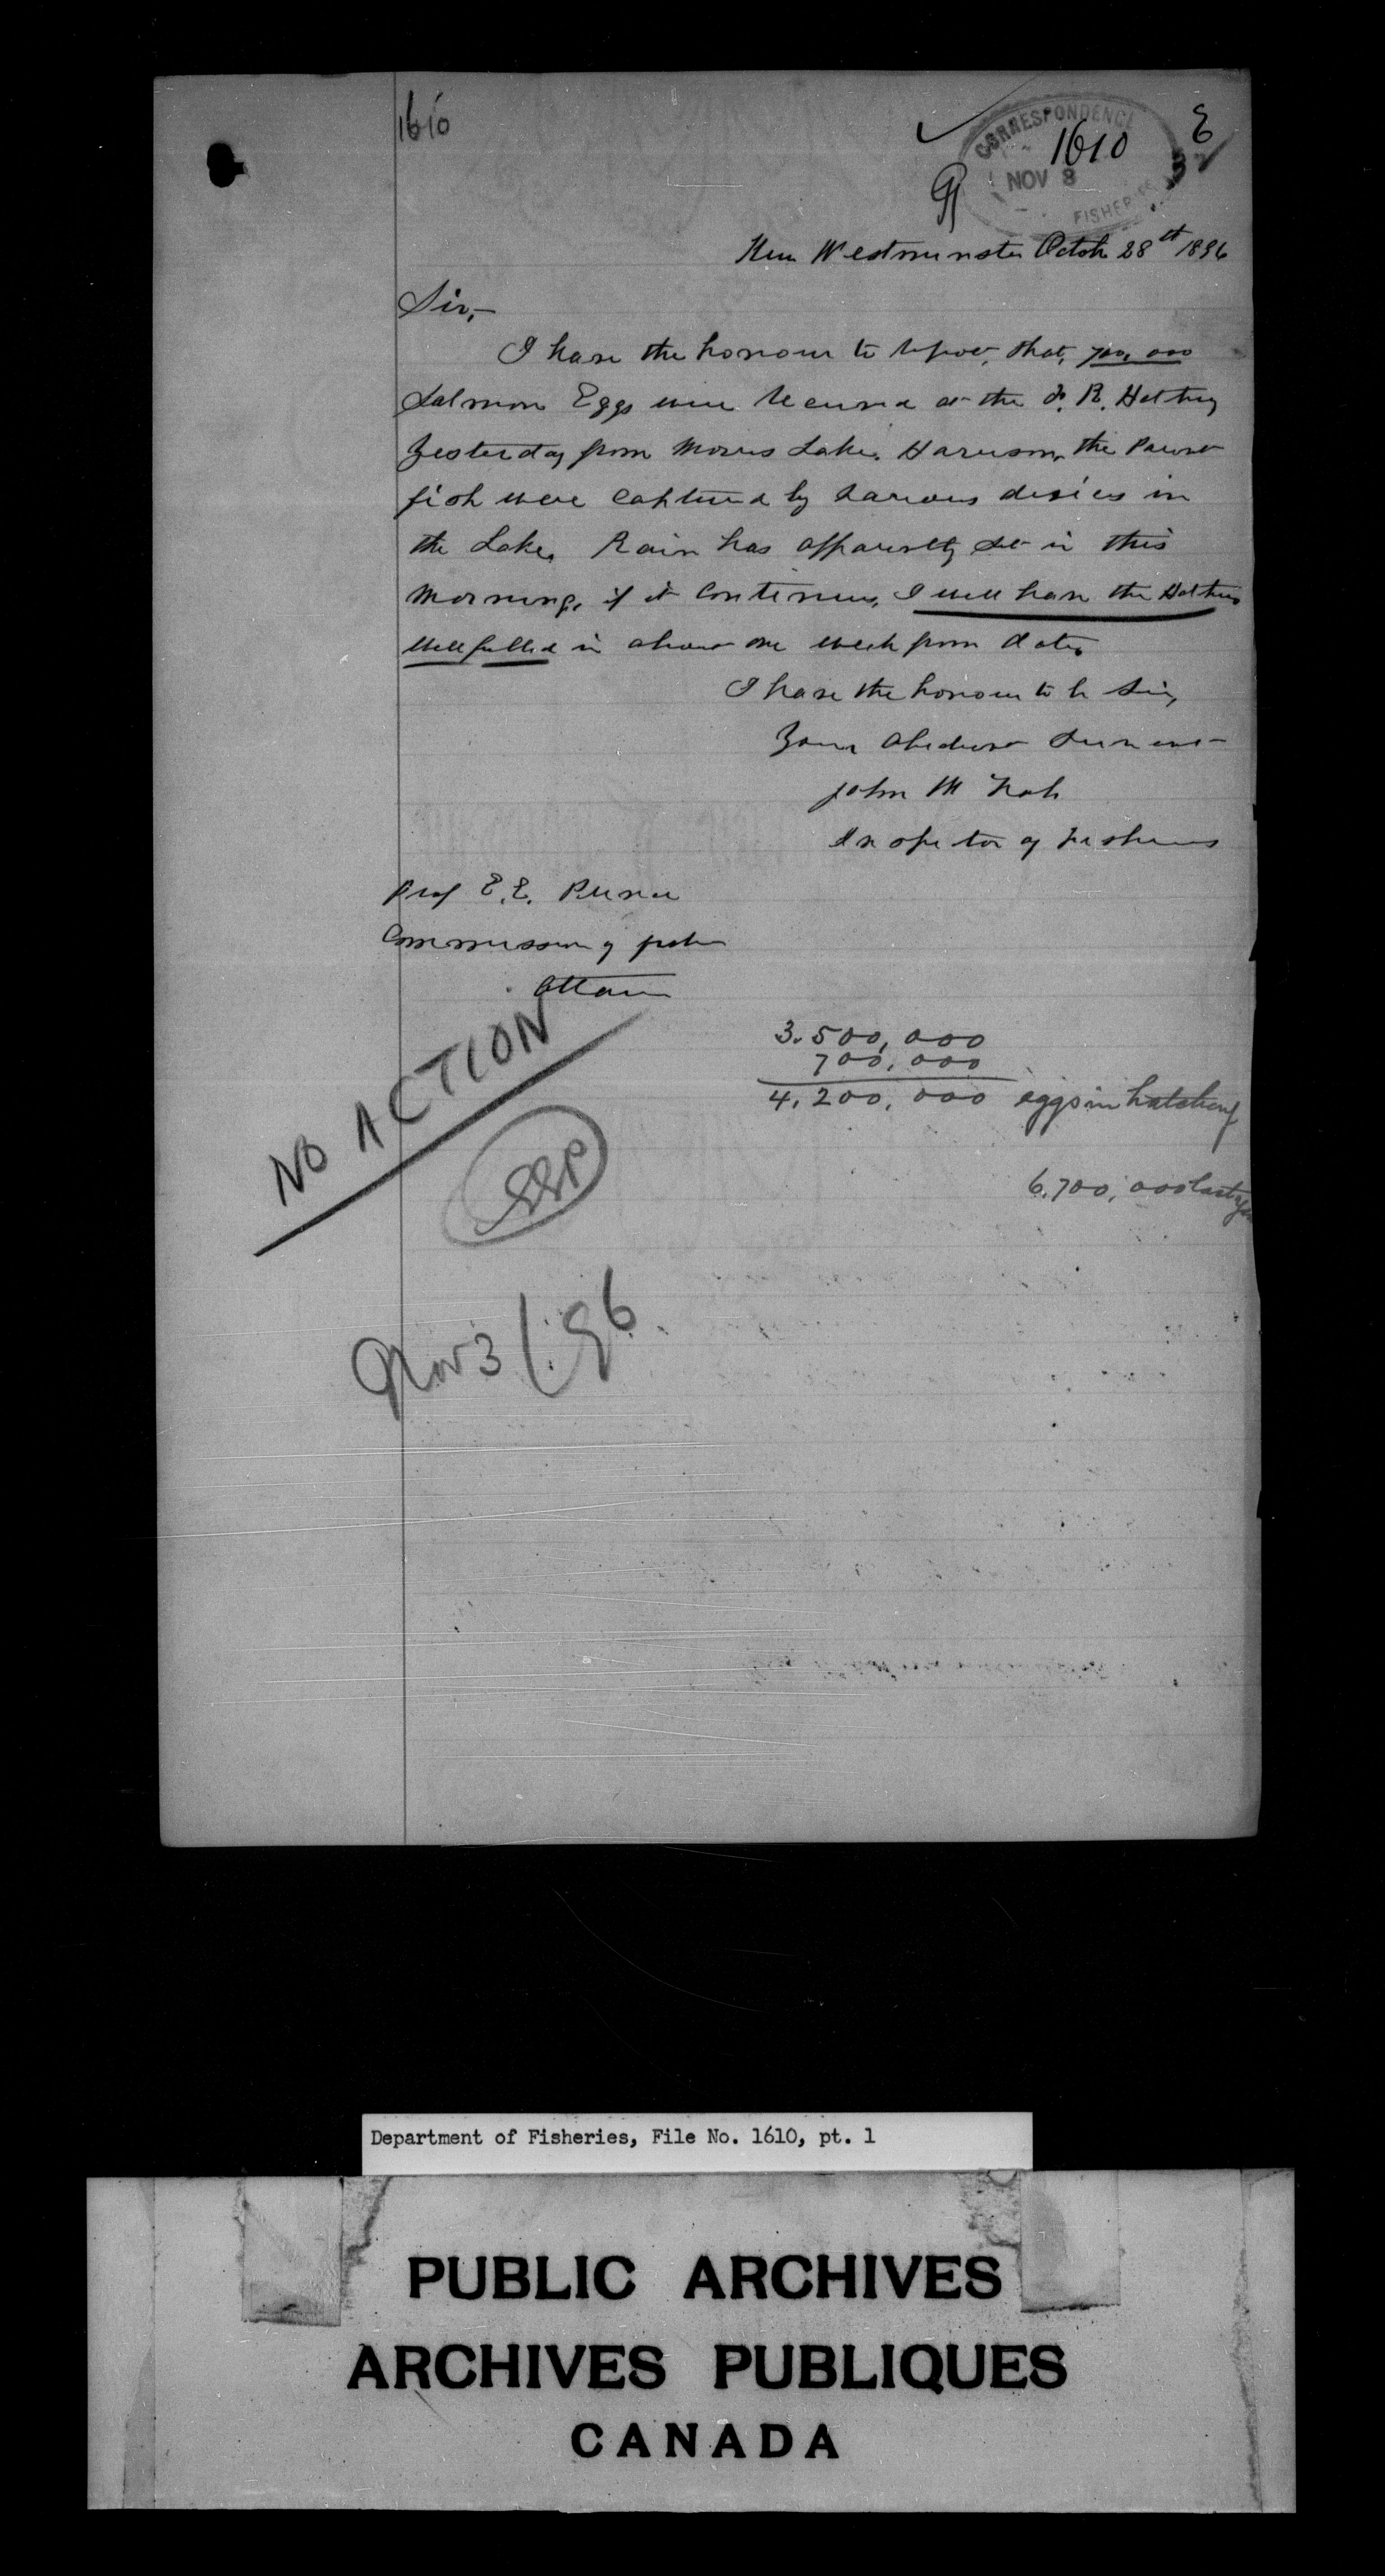 1610
CORRESPONDENCE
1610
NOV 3
FISHERIES
New Westminster Octob 28th 1896
Sir,
I have the honour to report, that, 700,000
Salmon Eggs were received at the F. R. Hatchery
yesterday from Morris Lake, Harrison, the Parent
fish were captured by various devices in
the Lake. Rain has apparently set in this
morning, if it continues, I will have the Hatchery
well filled in about one week from date.
I have the honour to be Sir,
Your Obedient Servant
John M
Inspector of Fisheries
Prof E. E. Prince
Commissioner of Fisheries
Ottawa
NO ACTION
3.500,000
700,000
4,200,000 eggs in hatchery
6,700,000 last year
EEP
Nov 3/96.
Department of Fisheries, File No. 1610, pt. 1
PUBLIC ARCHIVES
ARCHIVES PUBLIQUES
CANADA